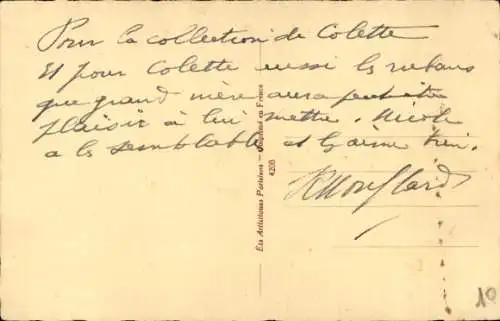 Pour la collection de Colette
Et pour Colette aussi les rubans
que grand mère aura peut etre
plaisir à lui mettre. Nicole
a les semblables et les aime bien.
Ets Artistiques Parisiens — Imprimé en France
4208
10